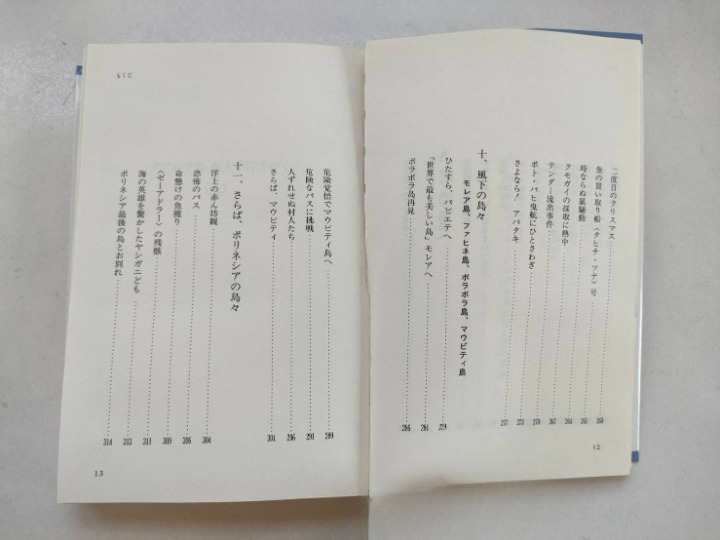 二度目のクリスマス 260
魚の買い取り船〈タヒチ・ツナ〉号 261
時ならぬ鼠騒動
クモガイの採取に熱中 264
テンダー流出事件 267
ポト・パヒ曳航にひとさわぎ 270
さよなら! アパタキ
十、風下の島々
モレア島、ファヒネ島、ボラボラ島、マウピティ島
ひたすら、パピエテへ 279
「世界で最も美しい島」モレアへ 281
ボラボラ島再見 286
12
もくじ
危険覚悟でマウピティ島へ 289
危険なパスに挑戦 291
人ずれせぬ村人たち 296
さらば、マウピティ 301
十一、さらば、ポリネシアの島々
洋上の赤ん坊鯨 304
恐怖のパス 306
命懸けの魚獲り 309
〈ゼーアドラー〉の残骸 311
海の英雄を驚かしたヤシガニども 312
ポリネシア最後の島とお別れ 314
13